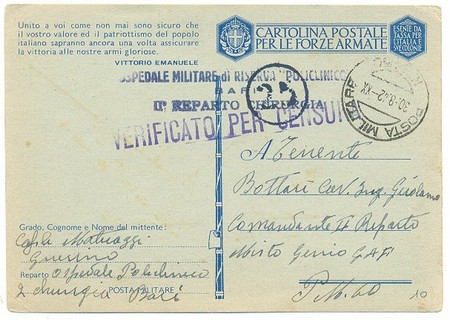 Unito a voi come non mai sono sicuro che
il vostro valore ed il patriottismo del popolo
italiano sapranno ancora una volta assicurare
la vittoria alle nostre armi gloriose.
VITTORIO EMANUELE
CARTOLINA POSTALE
PER LE FORZE ARMATE
ESENTE DA
TASSA PER
L'ITALIA
OSPEDALE MILITARE DI RISERVA "POLICLINICO
BARI
IIº REPARTO CHIRURGIA
VERIFICATO PER CENSURA
POSTA MILITARE
30-8-42-XX
A Tenente
Bottari Cav. Ing. Girolamo
Comandante II Reparto
Misto Genio GAF
P.M. 60
Grado, Cognome e Nome del mittente:
Guerrino
Reparto Ospedale Policlinico
2 chirurgia Bari
POSTA MILITARE
10